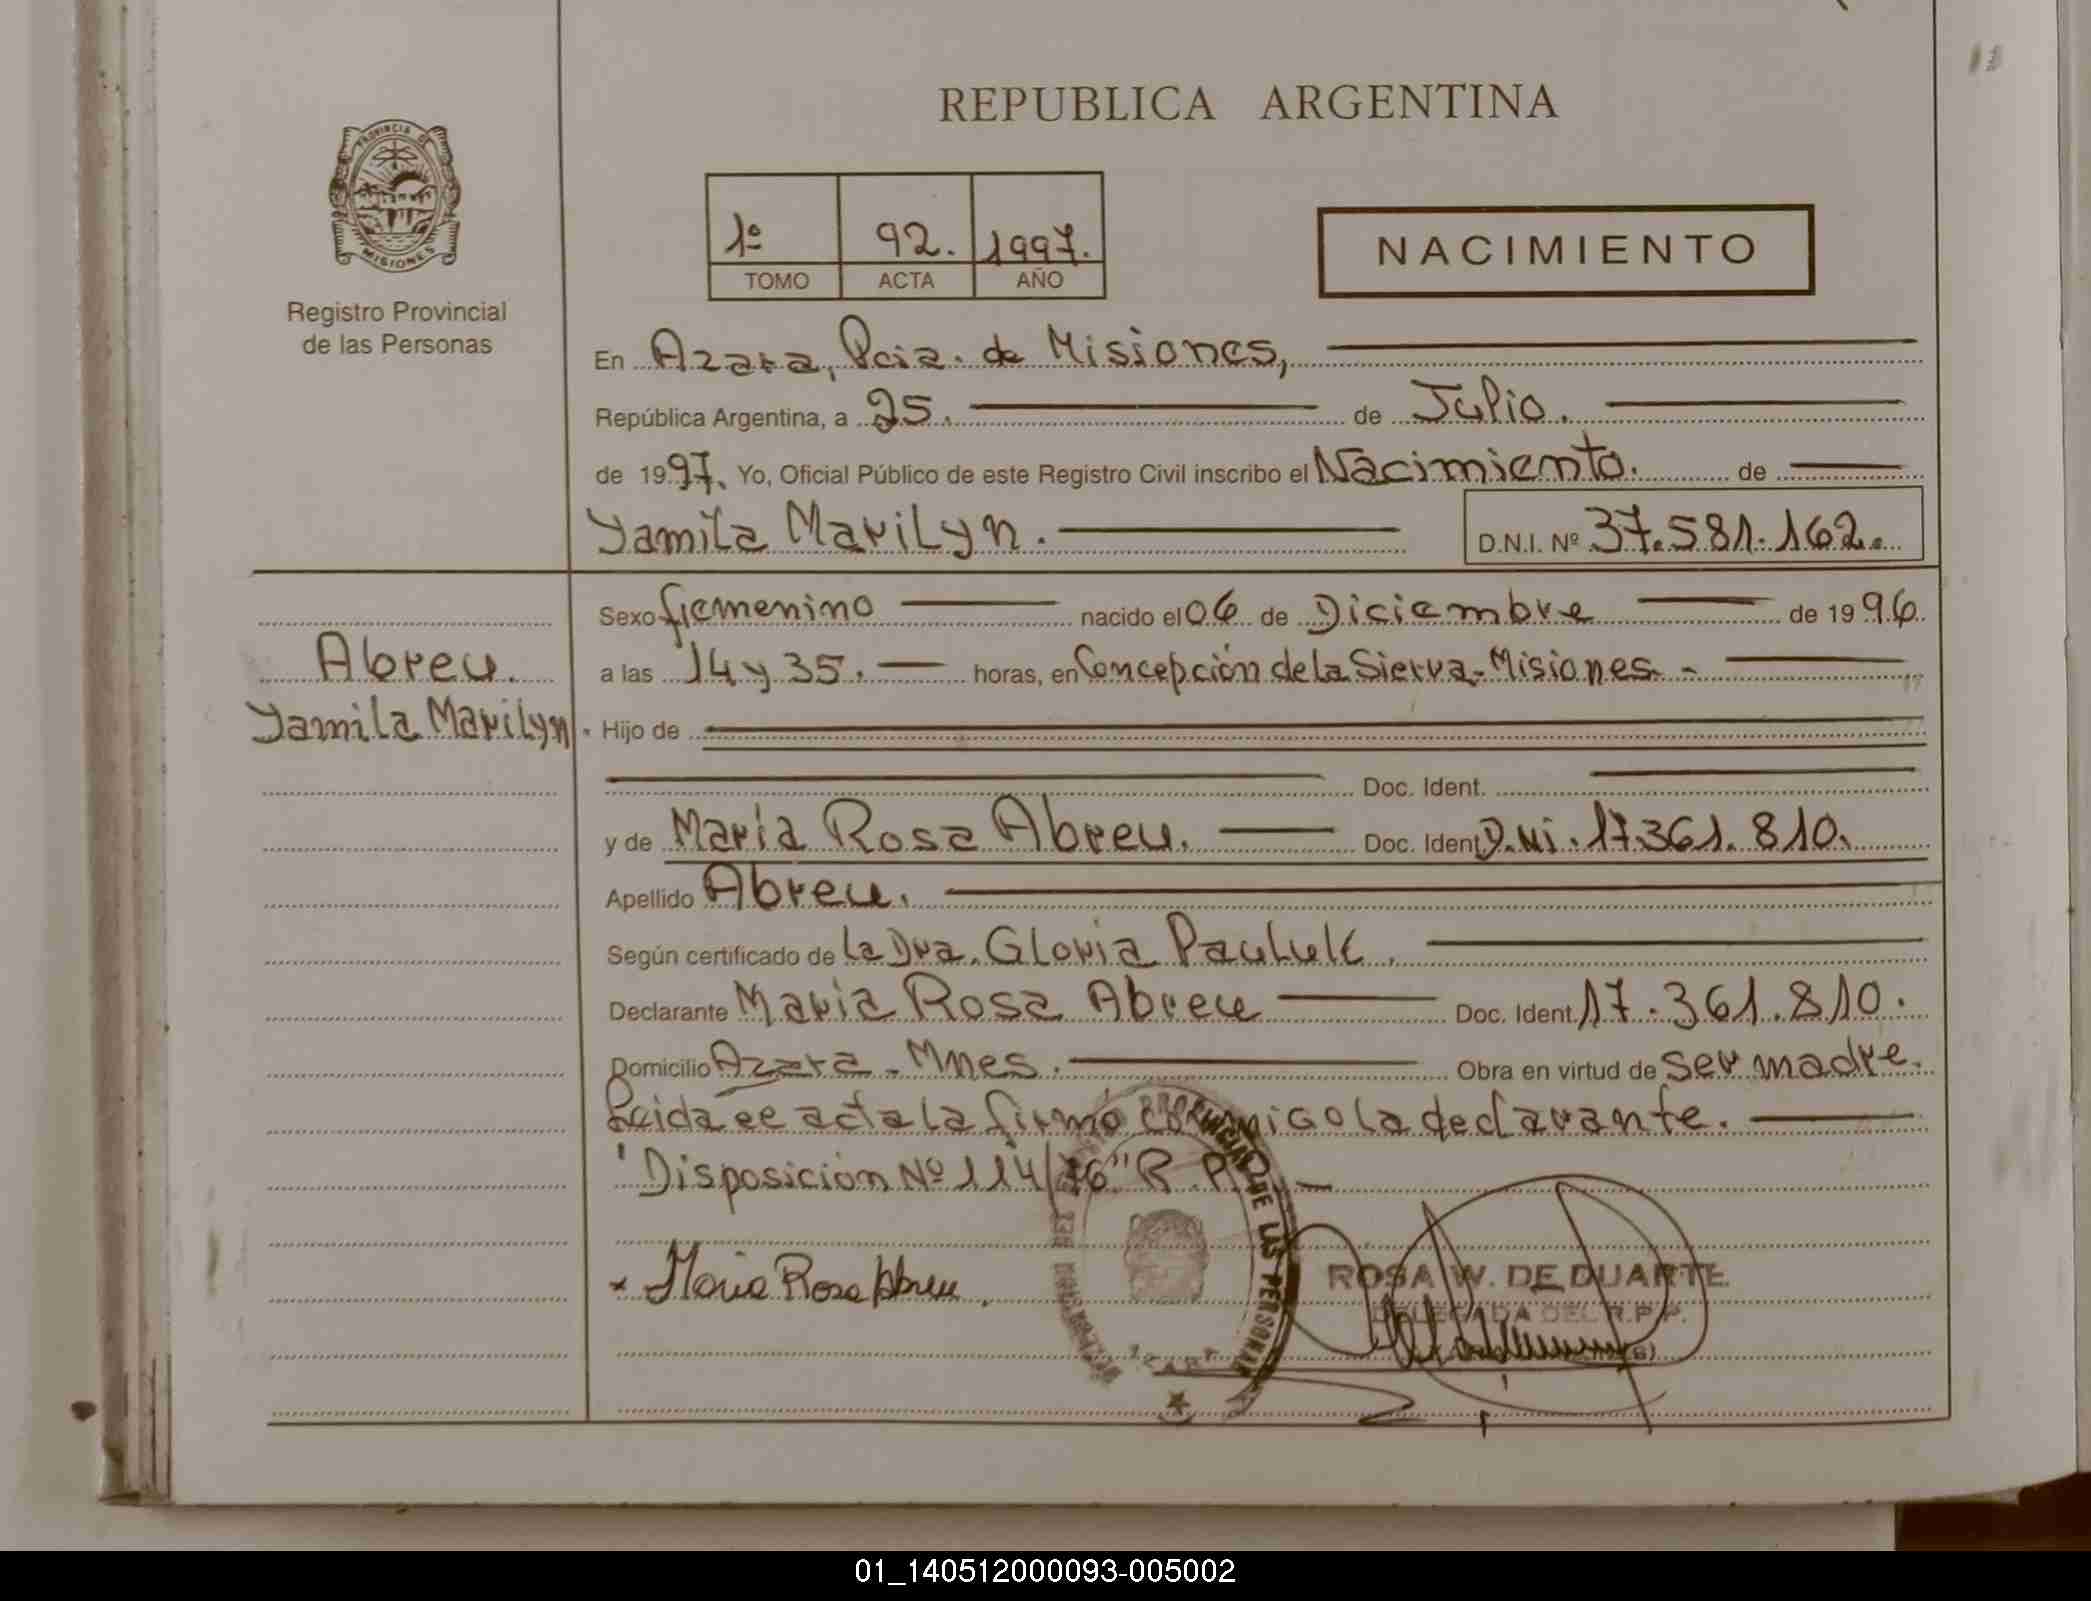 REPUBLICA ARGENTINA
PROVINCIA DE
MISIONES
Registro Provincial
de las Personas
1º 92. 1997.
TOMO ACTA AÑO
NACIMIENTO
En Azara, Pcia. de Misiones,
República Argentina, a 25. de Julio.
de 1997. Yo, Oficial Público de este Registro Civil inscribo el Nacimiento. de
Yamila Marilyn. D.N.I. Nº 37.581.162.
Sexo femenino nacido el 06 de Diciembre de 1996.
Abreu. a las 14 y 35. horas, en Concepción de la Sierra-Misiones-
Yamila Marilyn. Hijo de
Doc. Ident.
y de María Rosa Abreu. Doc. Ident D.Ni. 17.361.810.
Apellido Abreu.
Según certificado de La Dra. Gloria Pauluk.
Declarante María Rosa Abreu Doc. Ident. 17.361.810.
Domicilio Azara - Mnes. Obra en virtud de ser madre.
Leida el acta la firmó conmigo la declarante.
"Disposición Nº 114/76" R.P.P.
x Maria Rosa Abreu.
DE LAS PERSONAS
AZARA
ROSA W. DE DUARTE
DELEGADA DEL R.P.P.
01_140512000093-005002